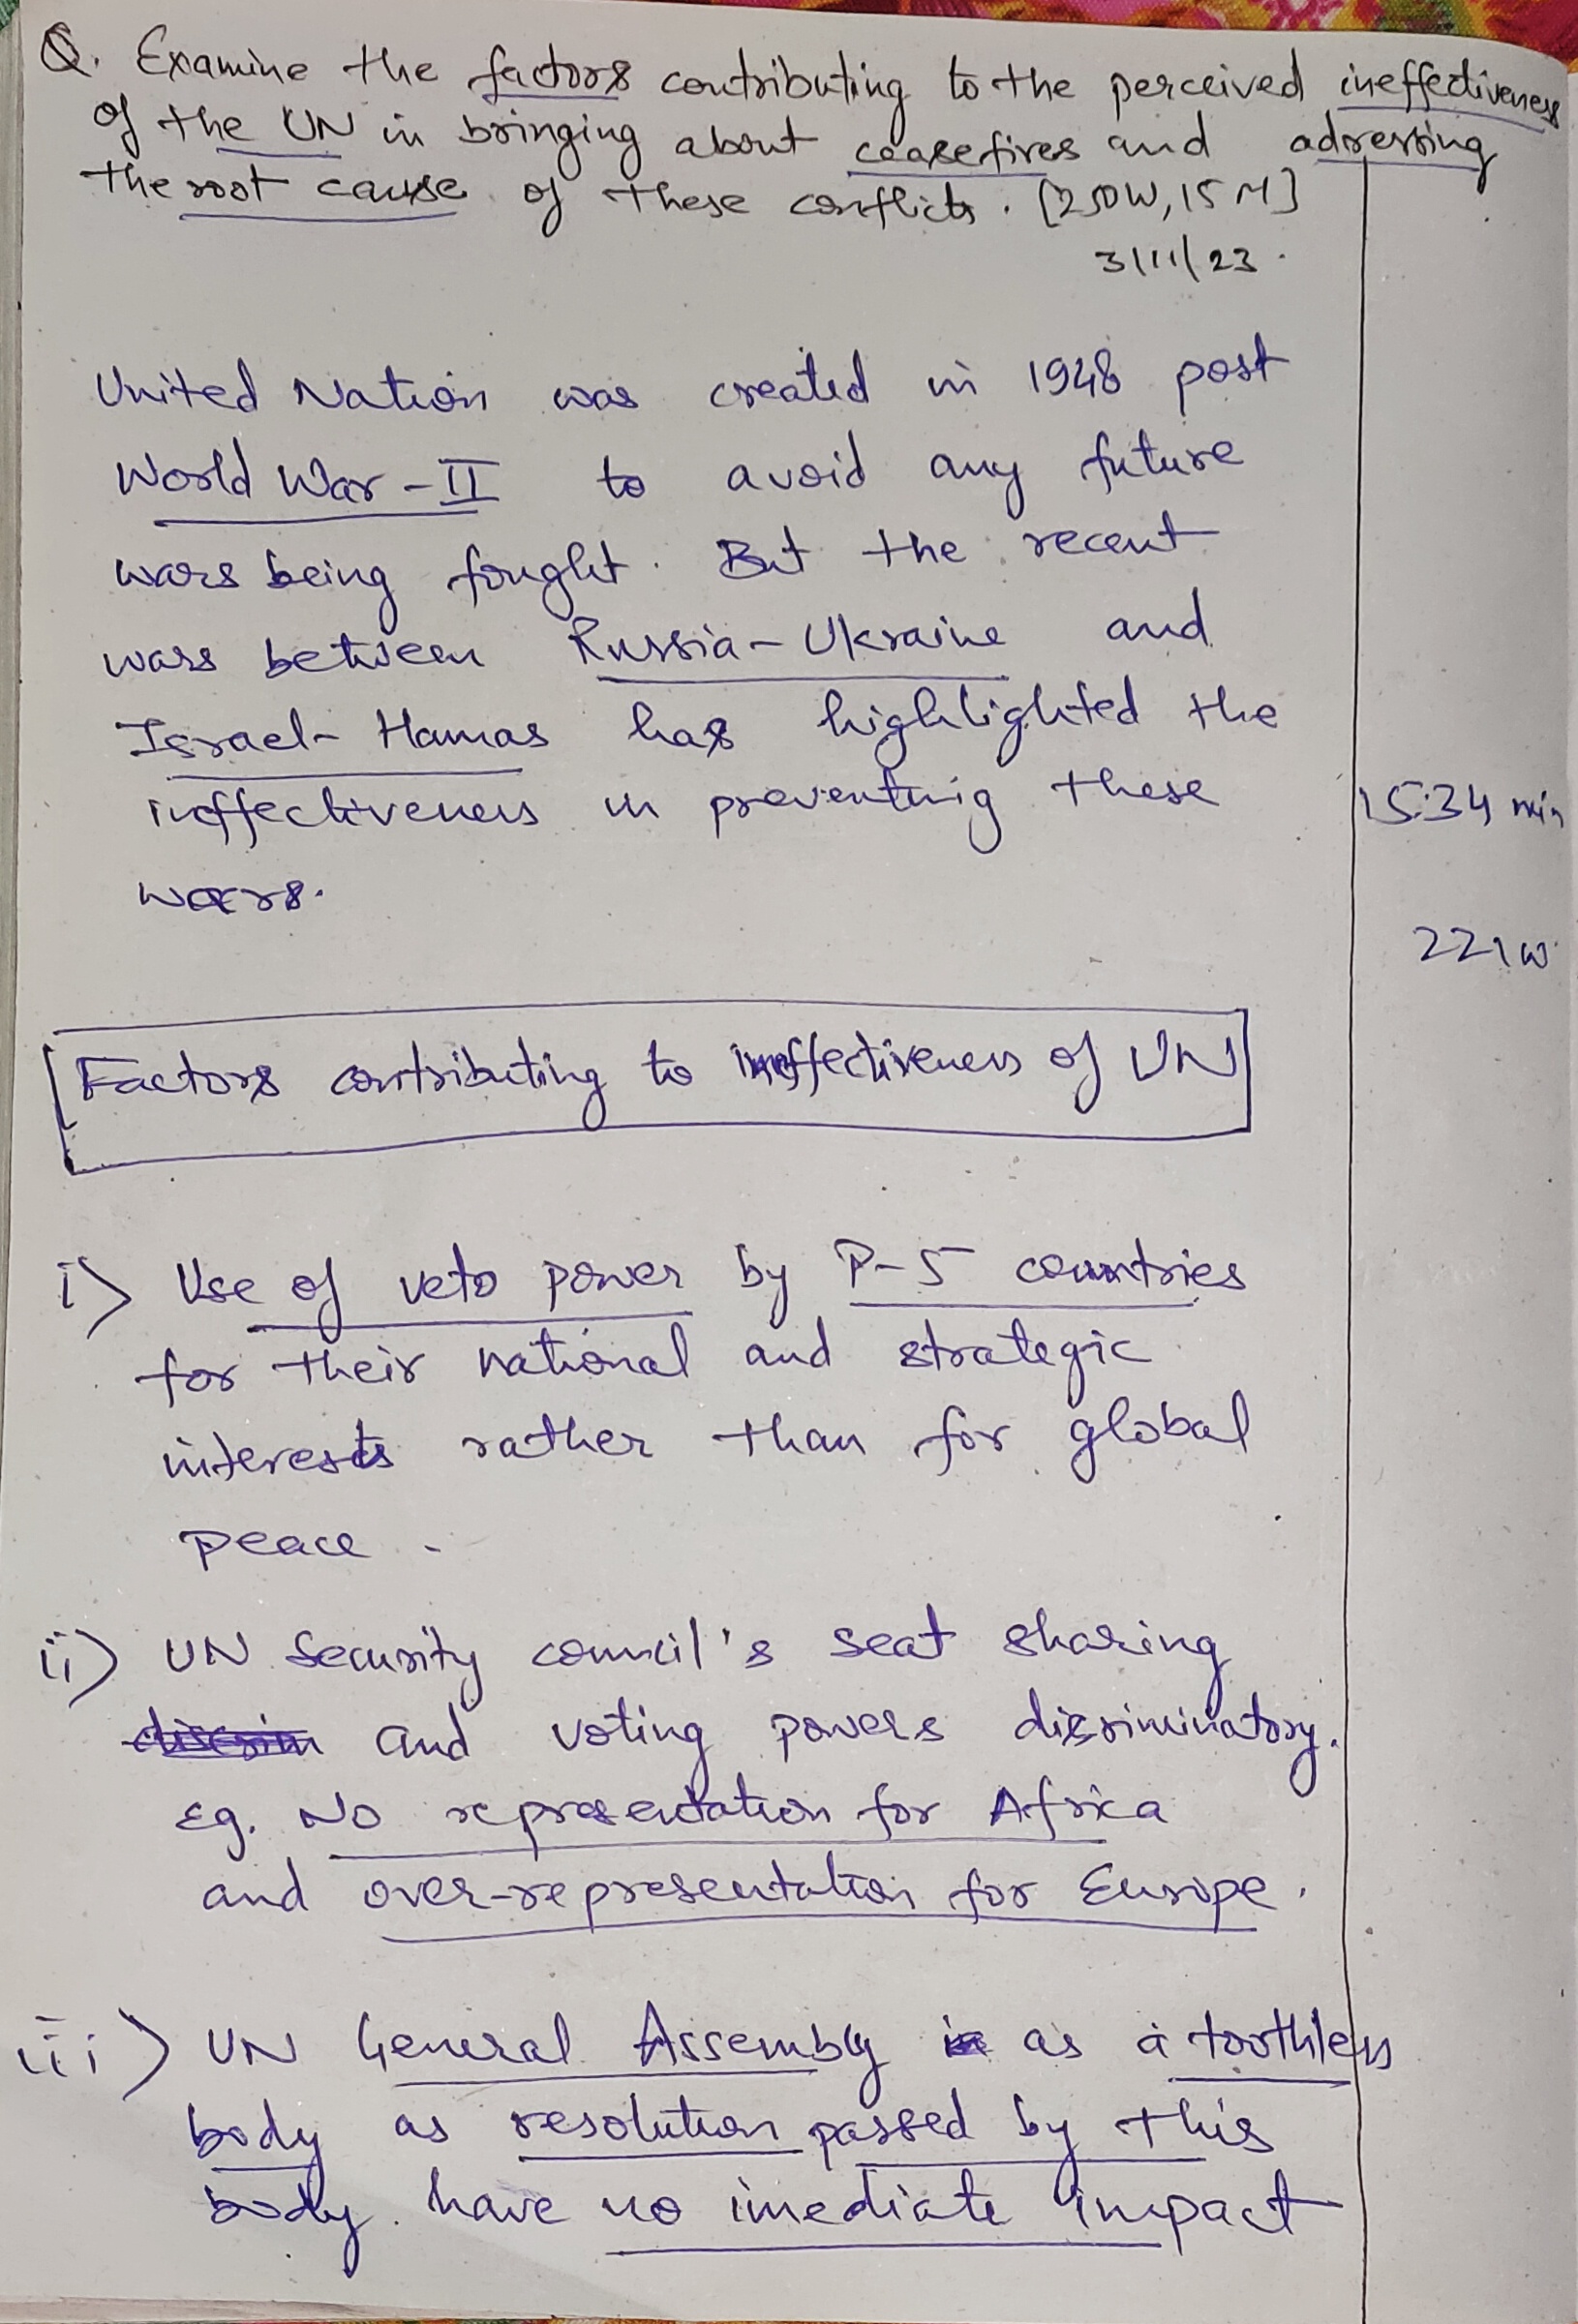 Q. Examine the factors contributing to the perceived ineffectiveness
of the UN in bringing about ceasefires and adressing
the root cause of these conflicts. [250W, 15 M]
3/11/23.
United Nation was created in 1948 post
World War-II to avoid any future
wars being fought. But the recent
wars between Russia-Ukraine and
Israel-Hamas has highlighted the
ineffectiveness in preventing these
wars.
15:34 min
221w
Factors contributing to ineffectiveness of UN
i) Use of veto power by P-5 countries
for their national and strategic
interests rather than for global
peace.
ii) UN Security council's seat sharing
discrim and voting powers discriminatory.
Eg. No representation for Africa
and over-representation for Europe.
iii) UN General Assembly is as a toothless
body as resolution passed by this
body have no imediate impact